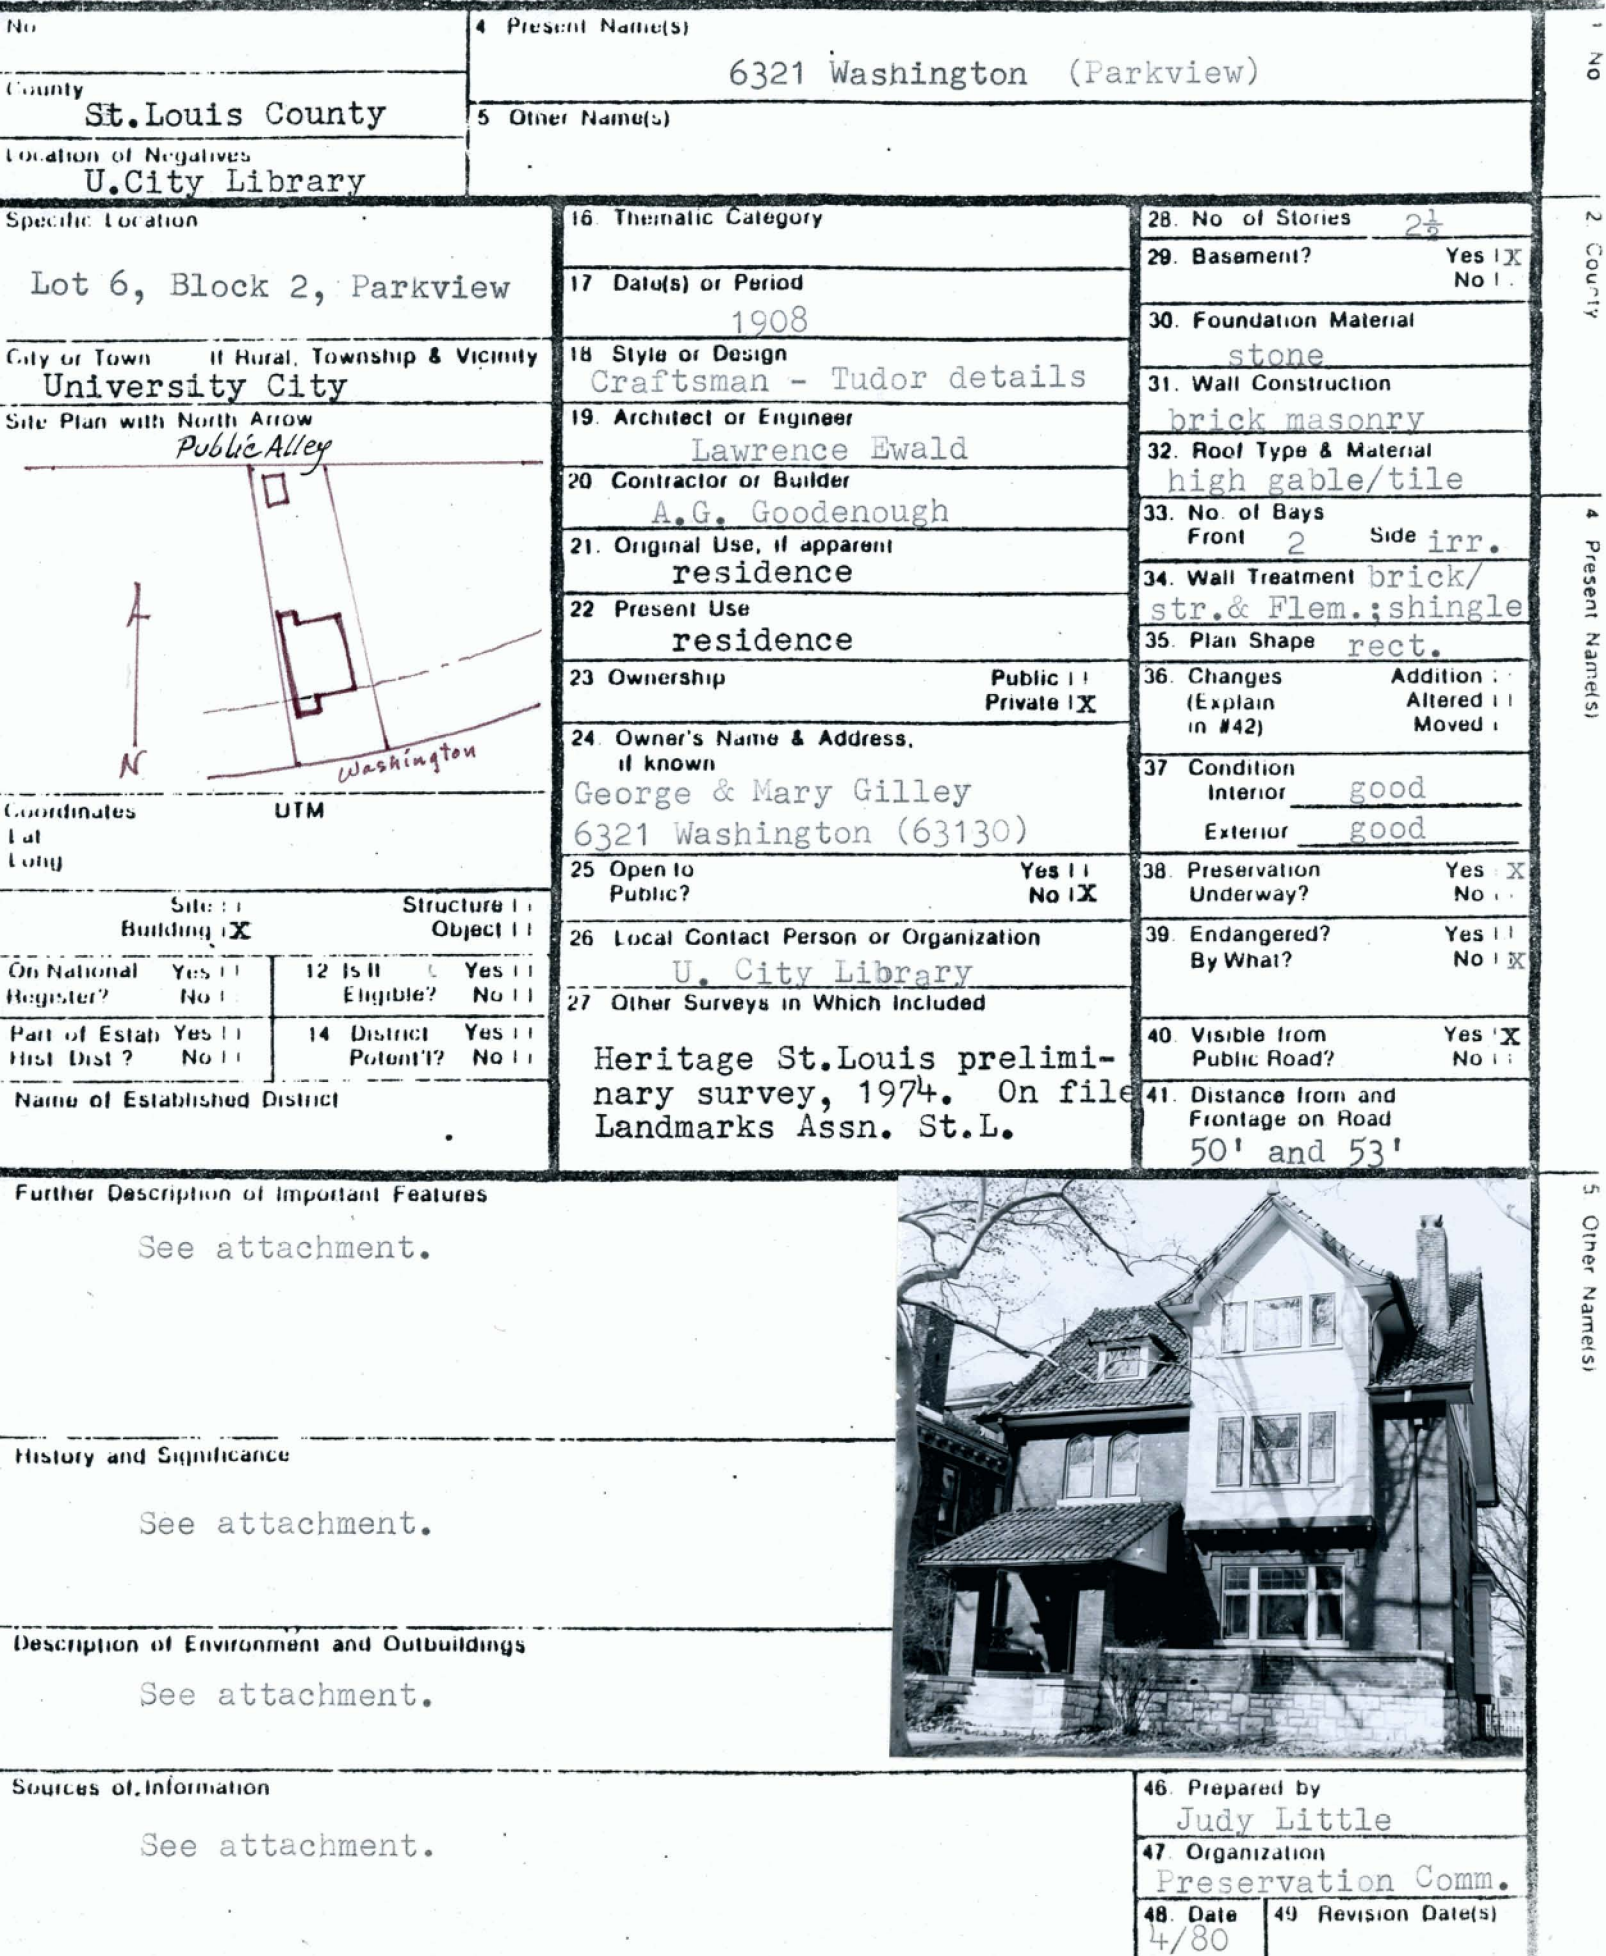 No
County
St.Louis County
Location of Negatives
U.City Library
4 Present Name(s)
6321 Washington (Parkview)
5 Other Name(s)
Specific Location
Lot 6, Block 2, Parkview
City or Town If Rural, Township & Vicinity
University City
Site Plan with North Arrow
Public Alley
N
Washington
Coordinates UTM
Lat
Long
Site Structure
Building X Object
On National Register? Yes No
12 Is It Eligible? Yes No
Part of Estab Hist Dist ? Yes No
14 District Potent'l? Yes No
Name of Established District
16. Thematic Category
17 Date(s) or Period
1908
18 Style or Design
Craftsman - Tudor details
19. Architect or Engineer
Lawrence Ewald
20 Contractor or Builder
A.G. Goodenough
21. Original Use, if apparent
residence
22 Present Use
residence
23 Ownership Public
Private X
24. Owner's Name & Address,
if known
George & Mary Gilley
6321 Washington (63130)
25 Open to Yes
Public? No X
26 Local Contact Person or Organization
U. City Library
27 Other Surveys in Which Included
Heritage St.Louis prelimi-
nary survey, 1974. On file
Landmarks Assn. St.L.
28. No of Stories 2½
29. Basement? Yes X
No
30. Foundation Material
stone
31. Wall Construction
brick masonry
32. Roof Type & Material
high gable/tile
33. No. of Bays
Front 2 Side irr.
34. Wall Treatment brick/
str.& Flem.;shingle
35. Plan Shape rect.
36. Changes Addition
(Explain Altered
in #42) Moved
37 Condition
Interior good
Exterior good
38. Preservation Yes X
Underway? No
39. Endangered? Yes
By What? No X
40. Visible from Yes X
Public Road? No
41. Distance from and
Frontage on Road
50' and 53'
Further Description of Important Features
See attachment.
History and Significance
See attachment.
Description of Environment and Outbuildings
See attachment.
Sources of Information
See attachment.
46. Prepared by
Judy Little
47. Organization
Preservation Comm.
48. Date
4/80
49 Revision Date(s)
1 No
2. County
4 Present Name(s)
5 Other Name(s)